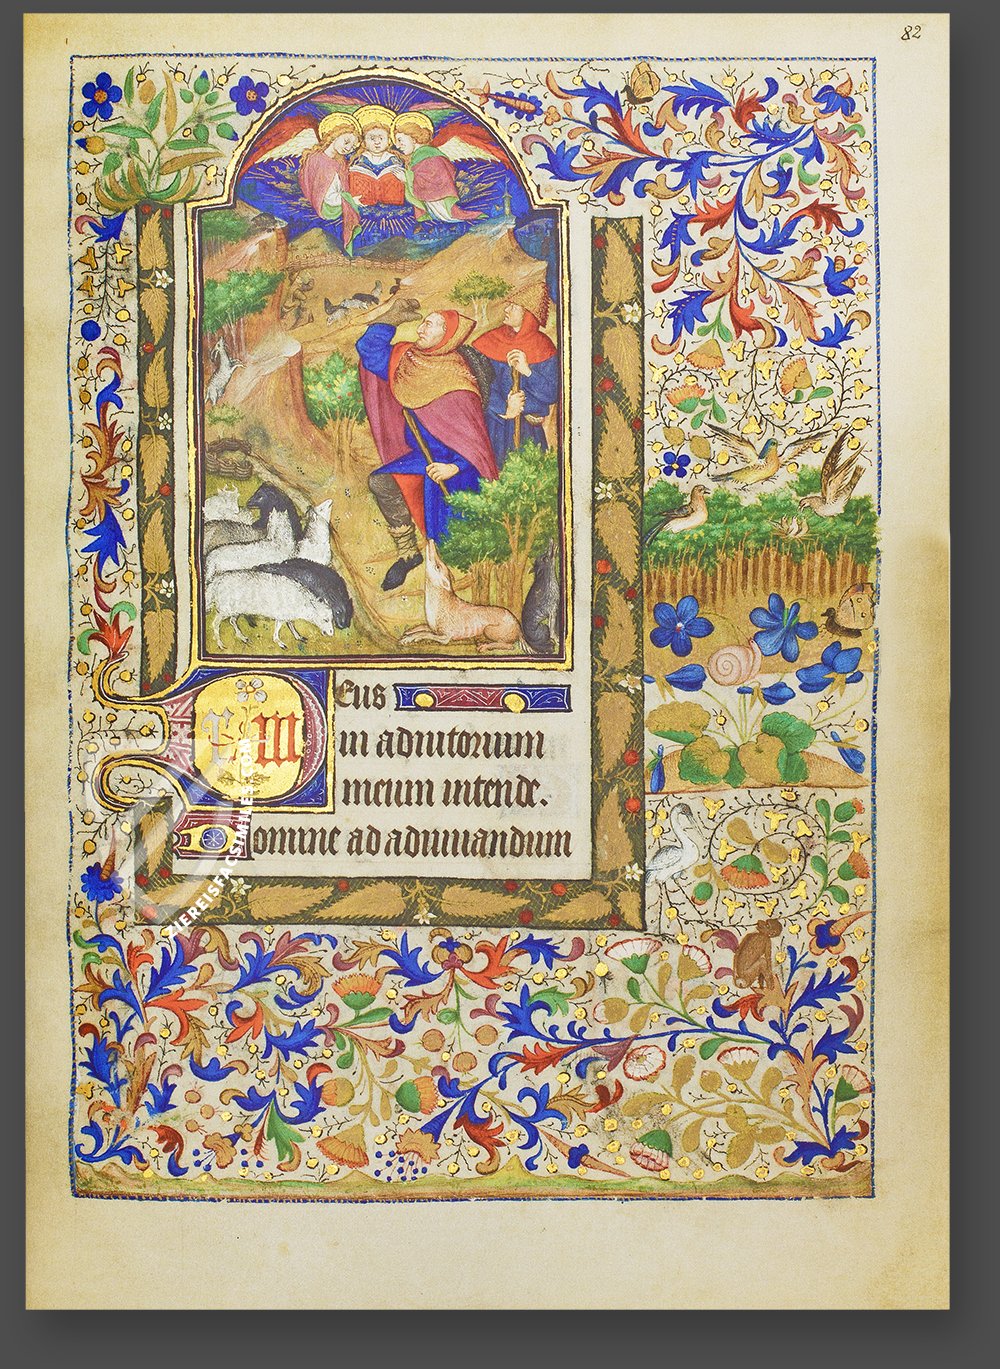 82
Deus
in adiutorium
meum intende.
Domine ad adiuuandum
ZIEREISFACSIMILES.COM